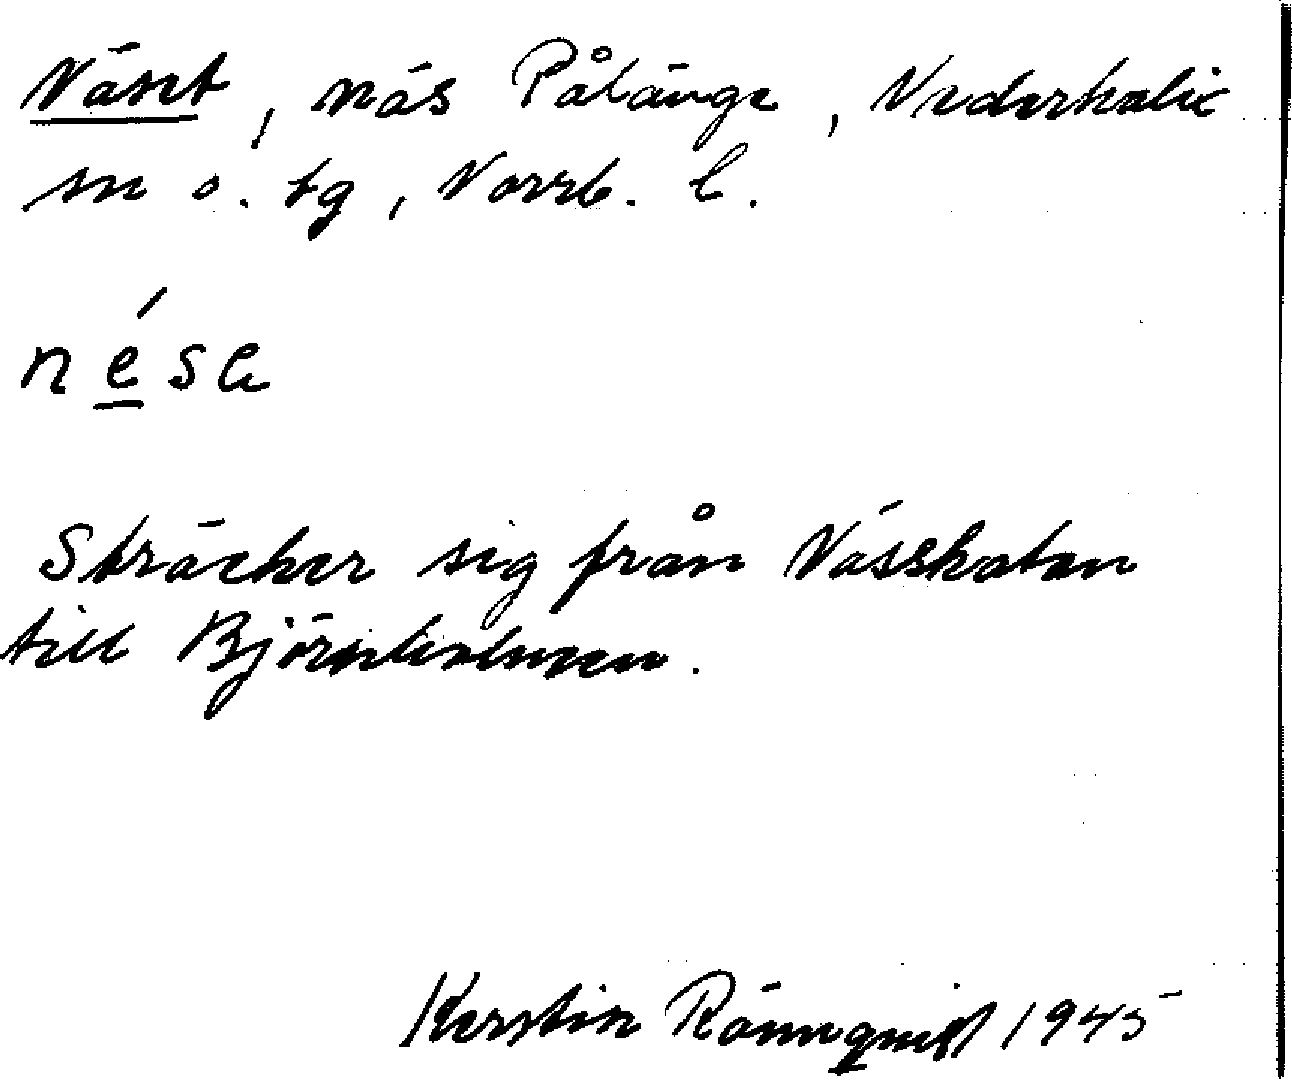 Näset, näs Pålänge, Nederkalix
sn o. tg, Norrb. l.
nése
Sträcker sig från Nässkatan
till Björnholmen.
Kerstin Rönnqvist 1945